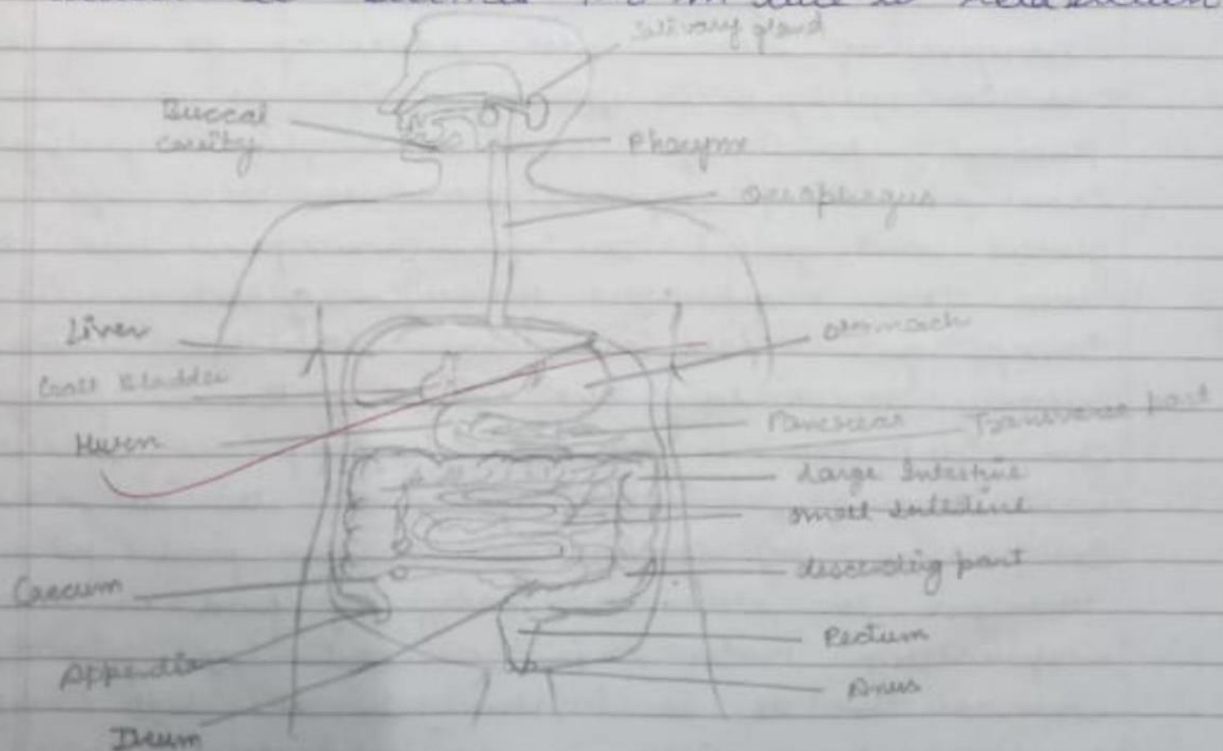 relaxation
Salivary gland
Buccal
cavity
Pharynx
oesophagus
Liver
stomach
Gall Bladder
Pancreas
Transverse part
Large Intestine
small Intestine
Caecum
descending part
Rectum
Appendix
Anus
Ileum